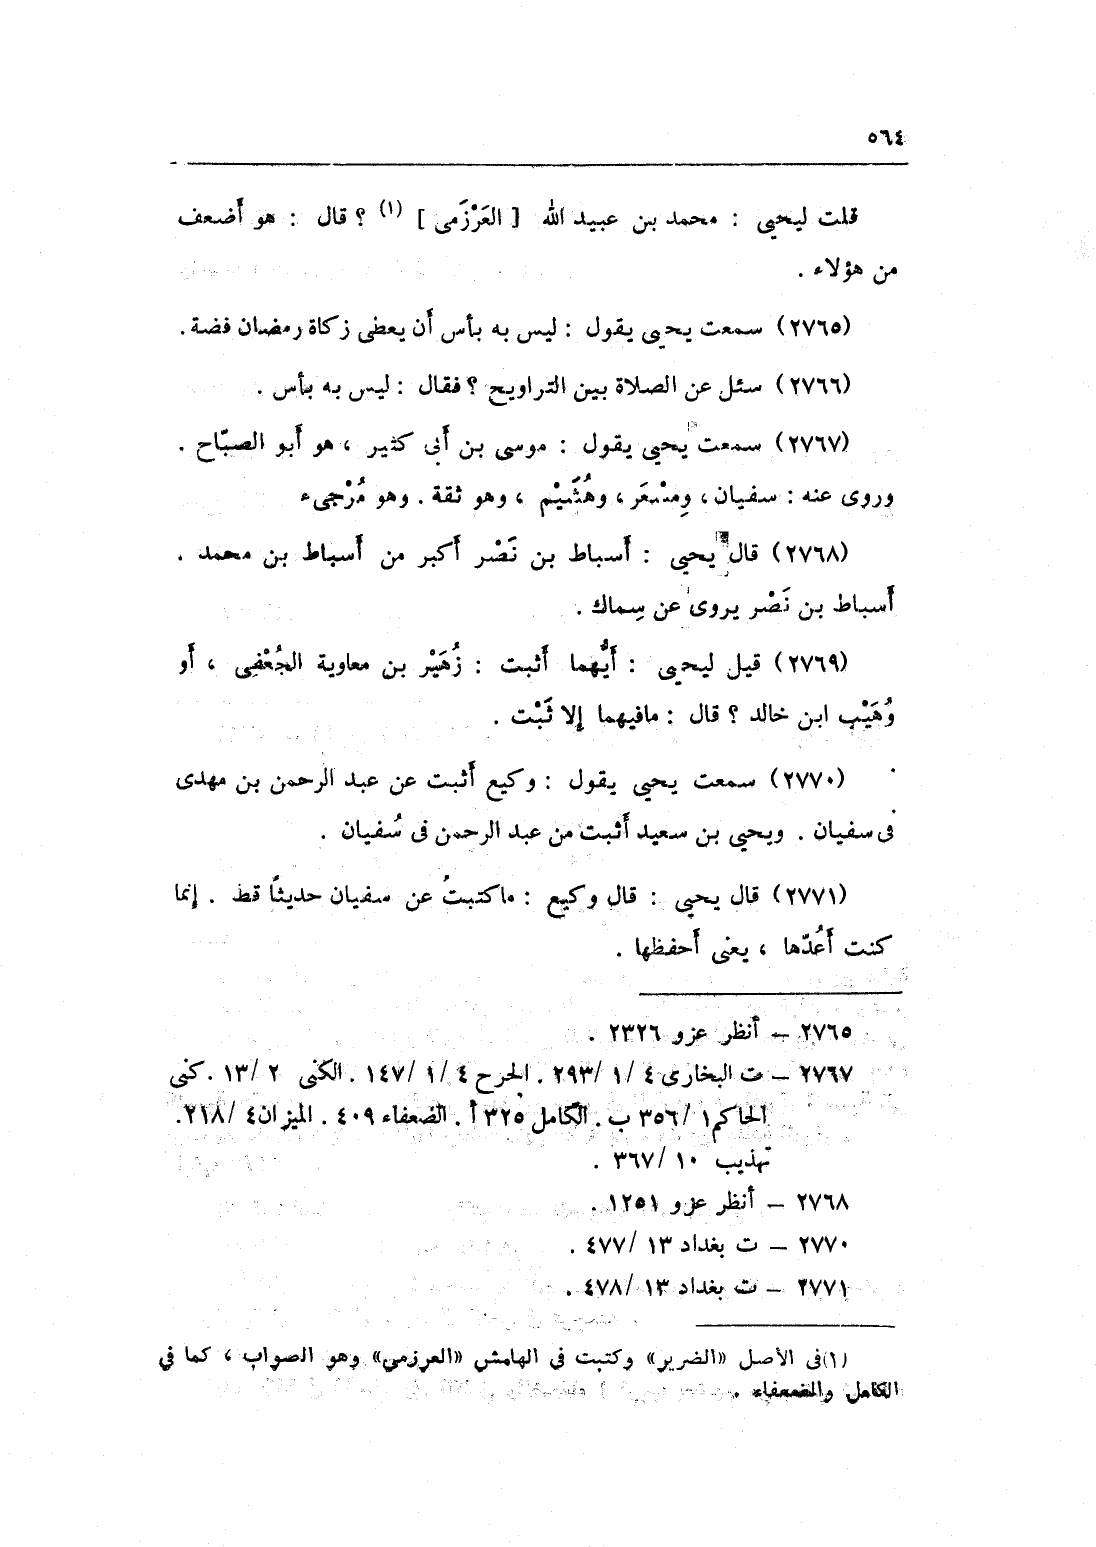 ٥٦٤
قلت ليحيى : محمد بن عبيد الله [ العَرْزَمى ] (١) ؟ قال : هو أَضعف
من هؤلاء .
(٢٧٦٥) سمعت يحيى يقول : ليس به بأس أَن يعطى زكاة رمضان فضة .
(٢٧٦٦) سئل عن الصلاة بين التراويح ؟ فقال : ليس به بأس .
(٢٧٦٧) سمعت يحيى يقول : موسى بن أَبى كثير ، هو أَبو الصبّاح .
وروى عنه : سفيان ، ومِسْعَر ، وهُشَيْم ، وهو ثقة . وهو مُرْجىء
(٢٧٦٨) قال يحيى : أَسباط بن نَصْر أَكبر من أَسباط بن محمد .
أَسباط بن نَصْر يروى عن سِماك .
(٢٧٦٩) قيل ليحيى : أَيُّهما أَثبت : زُهَيْر بن معاوية الجُعْفِى ، أَو
وُهَيْب ابن خالد ؟ قال : مافيهما إلا ثَبْت .
(٢٧٧٠) سمعت يحيى يقول : وكيع أَثبت عن عبد الرحمن بن مهدى
فى سفيان . ويحيى بن سعيد أَثبت من عبد الرحمن فى سُفيان .
(٢٧٧١) قال يحيى : قال وكيع : ماكتبتُ عن سفيان حديثاً قط . إنما
كنت أَعُدّها ، يعنى أَحفظها .
٢٧٦٥ – أنظر عزو ٢٣٢٦ .
٢٧٦٧ – ت البخارى ٤ /١ /٢٩٣ . الجرح ٤ /١ /١٤٧ . الكنى ٢ /١٣ . كنى
الحاكم١ /٣٥٦ ب . الكامل ٣٢٥ أ . الضعفاء ٤٠٩ . الميزان٤ /٢١٨.
تهذيب ١٠ /٣٦٧ .
٢٧٦٨ – أنظر عزو ١٢٥١ .
٢٧٧٠ – ت بغداد ١٣ /٤٧٧ .
٢٧٧١ – ت بغداد ١٣ /٤٧٨ .
(١)فى الأصل «الضرير» وكتبت فى الهامش «العرزمى» وهو الصواب ، كما فى
الكامل والضعفاء .